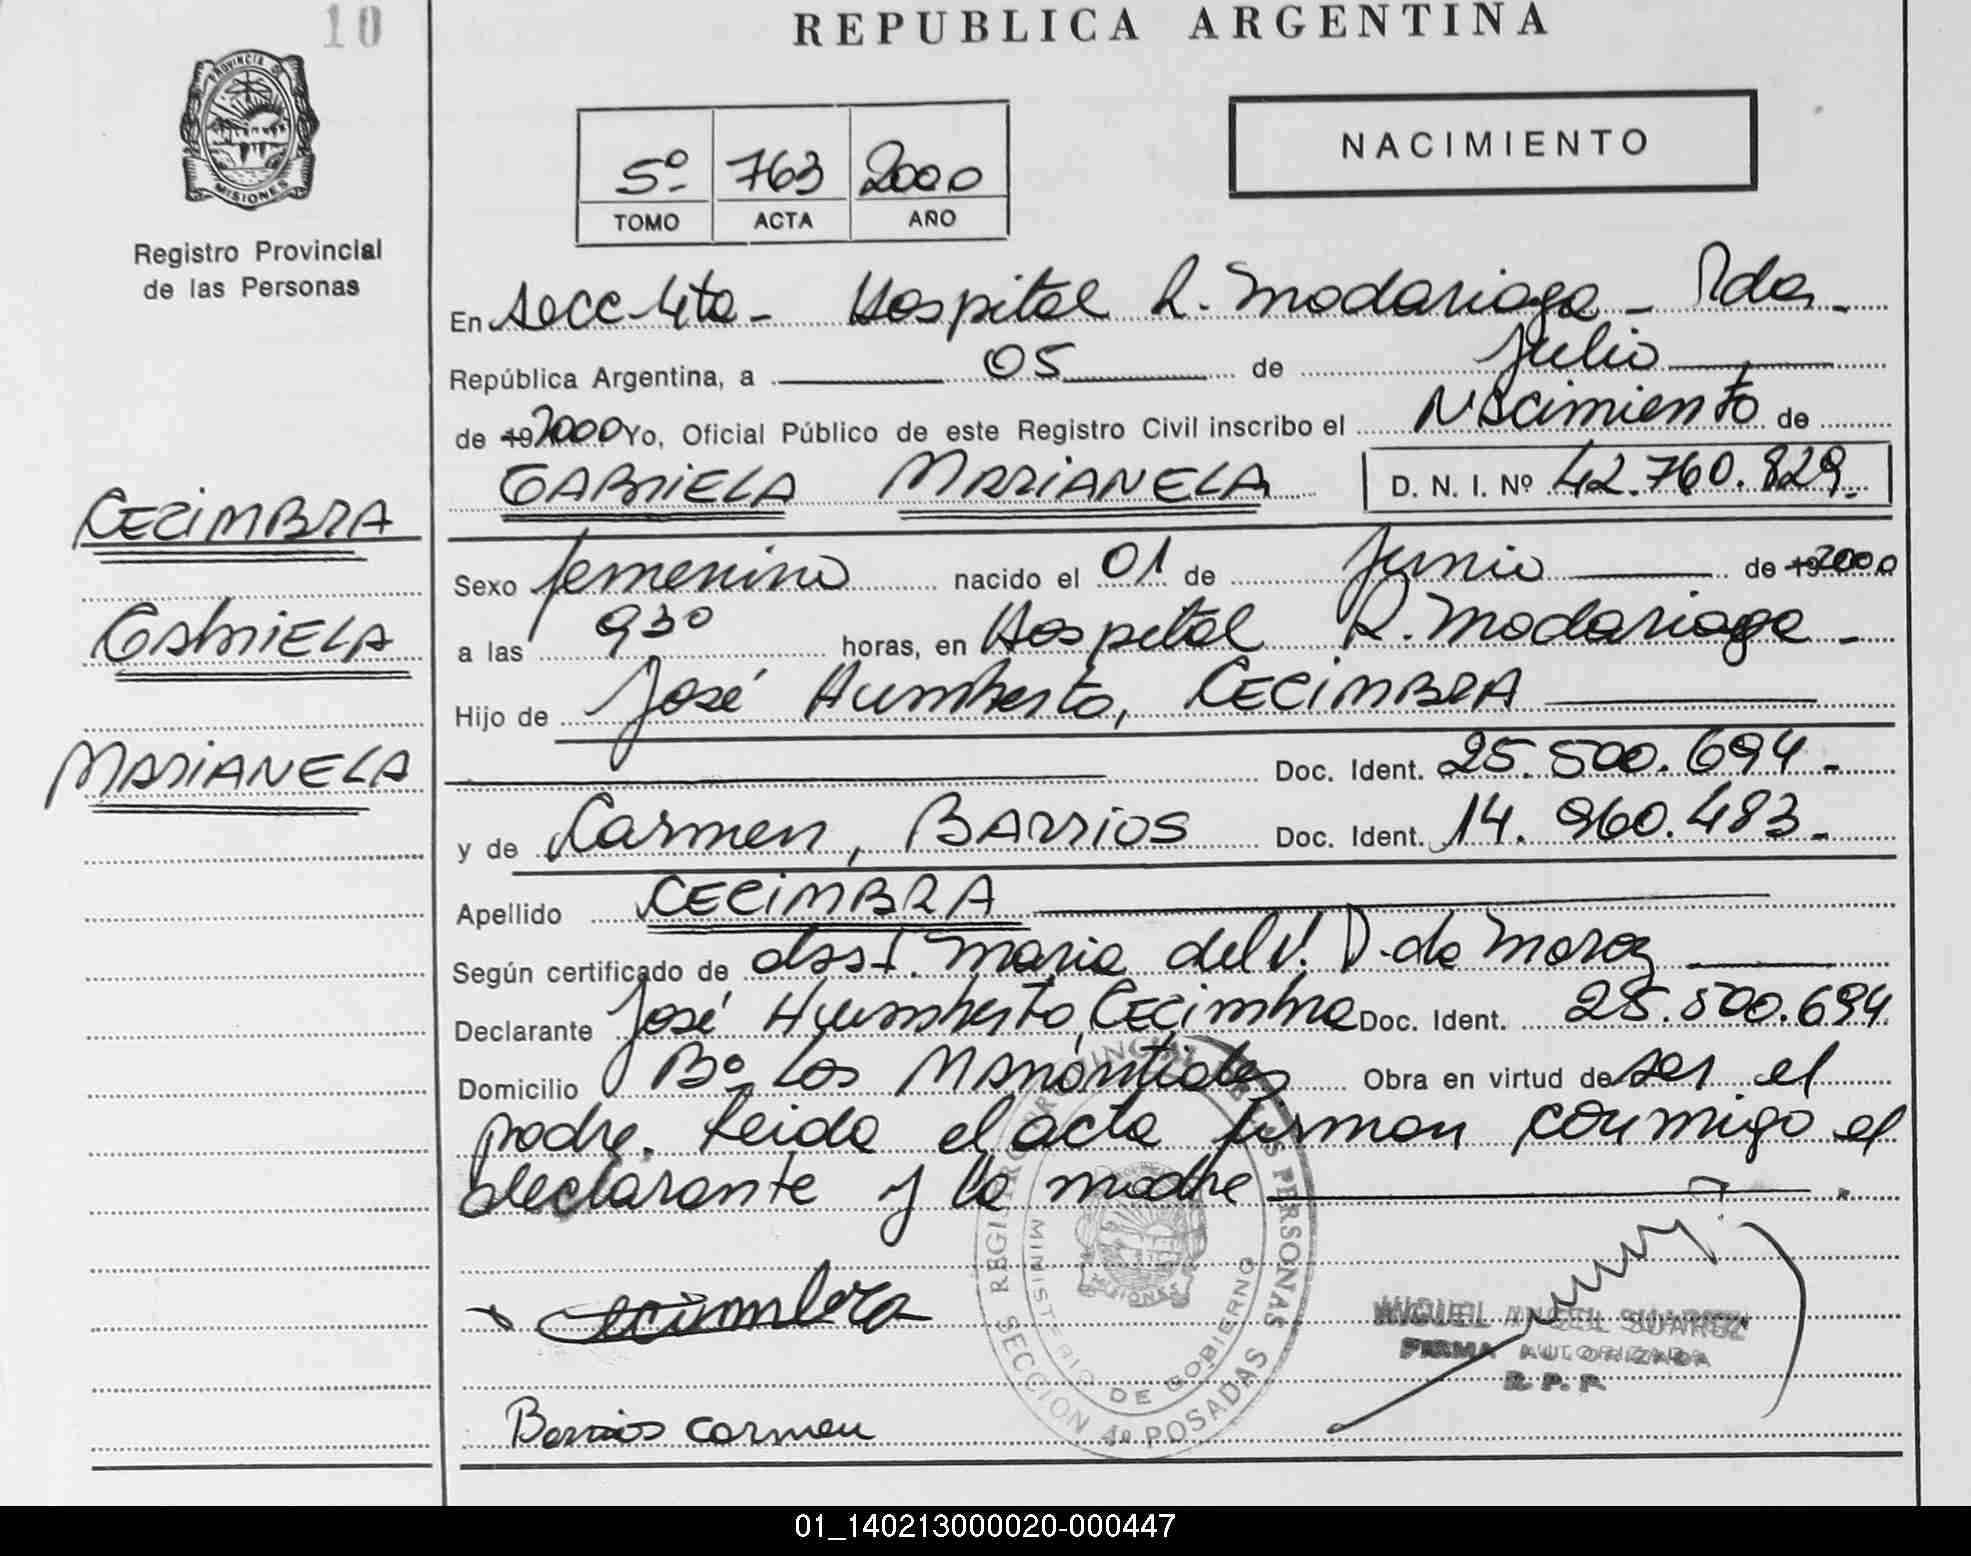 10
REPUBLICA ARGENTINA
PROVINCIA DE
MISIONES
Registro Provincial
de las Personas
5º 763 2000
TOMO ACTA AÑO
NACIMIENTO
En Secc 4ta - Hospital R. Madariaga - Pdas. -
República Argentina, a 05 de Julio
de 19 2000 Yo, Oficial Público de este Registro Civil inscribo el Nacimiento de
GABRIELA MARIANELA D. N. I. Nº 42.760.829.
CECIMBRA
GABRIELA
MARIANELA
Sexo femenino nacido el 01 de Junio de 19 2000
a las 9 30 horas, en Hospital R. Madariaga -
Hijo de José Humberto, CECIMBRA
Doc. Ident. 25.500.694 -
y de Carmen, BARRIOS Doc. Ident. 14.960.483 -
Apellido CECIMBRA
Según certificado de obst. Maria del V. D. de Moraz
Declarante José Humberto Cecimbra Doc. Ident. 25.500.694
Domicilio Bº Los Manantiales Obra en virtud de ser el
padre. Leida el acta firman conmigo el
declarante y la madre .
REGISTRO PROVINCIAL DE LAS PERSONAS
MINISTERIO DE GOBIERNO
SECCION 4ª POSADAS
MISIONES
Cecimbra
MIGUEL ANGEL SUAREZ
FIRMA AUTORIZADA
R. P. P.
Barrios Carmen
01_140213000020-000447